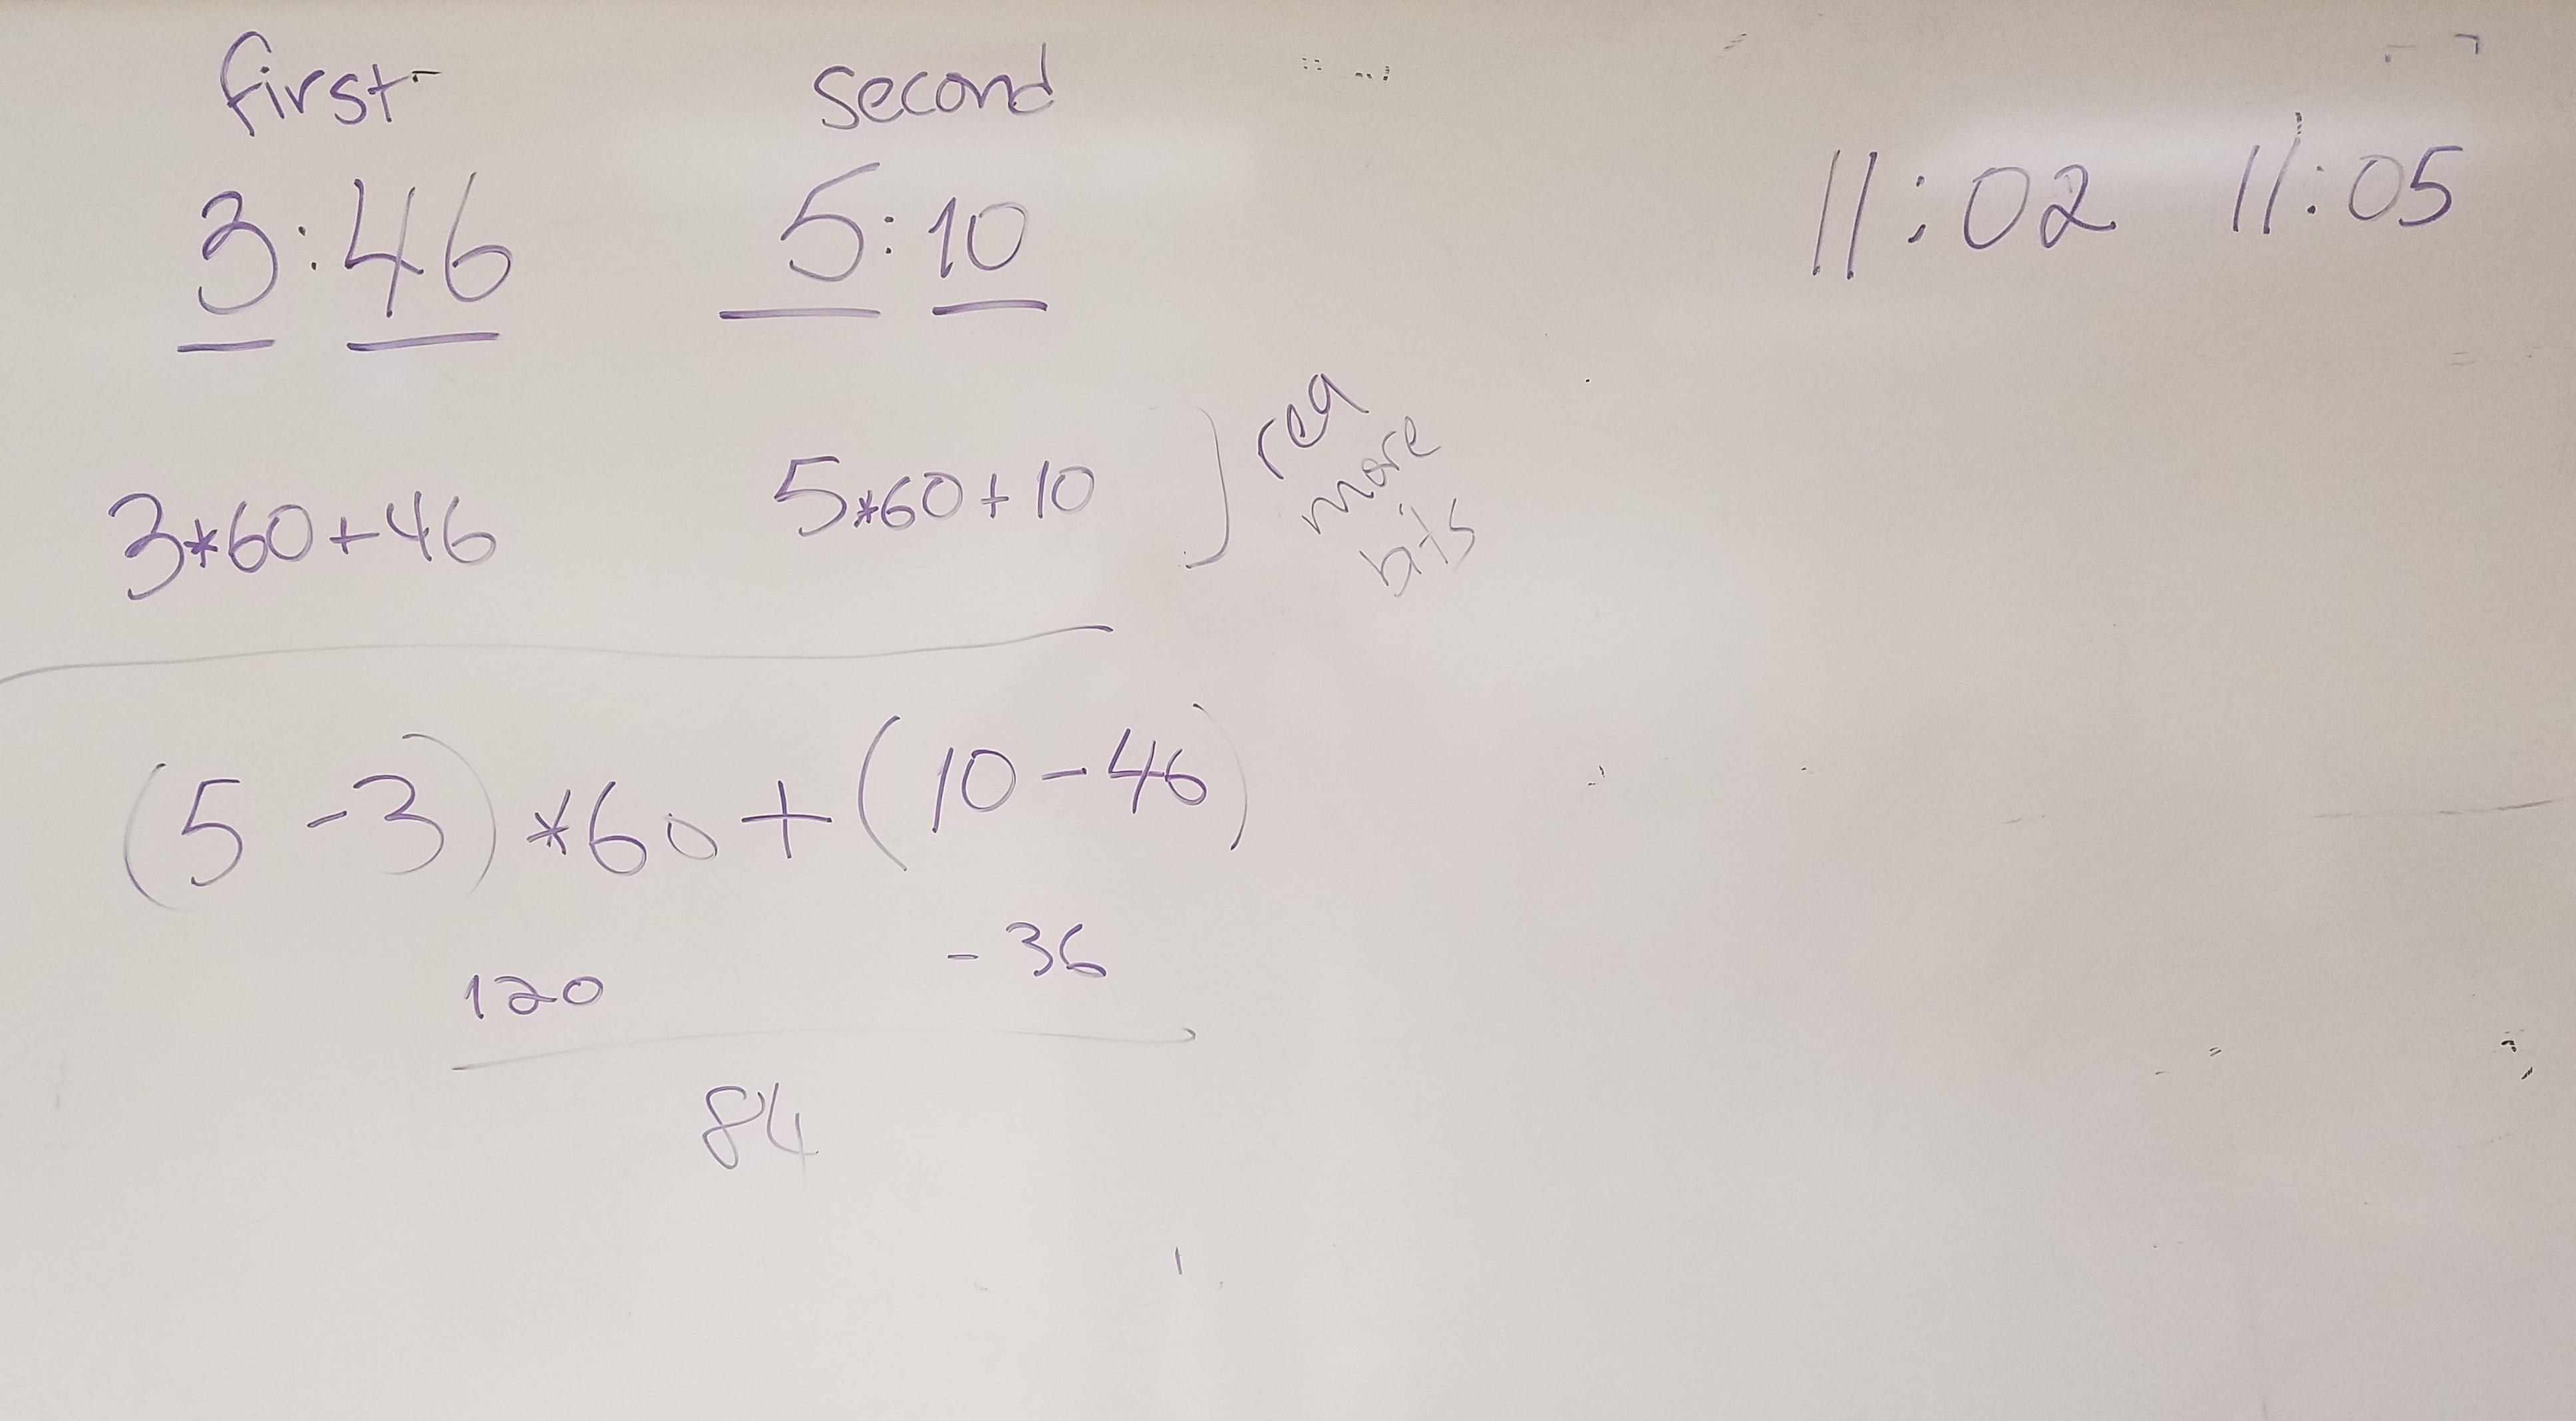 first second
3:46 5:10
11:02 11:05
3*60+46 5*60+10
more
bits
(5-3)*60+(10-46)
120 -36
84